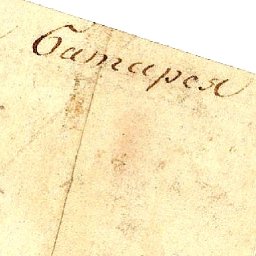 батарея